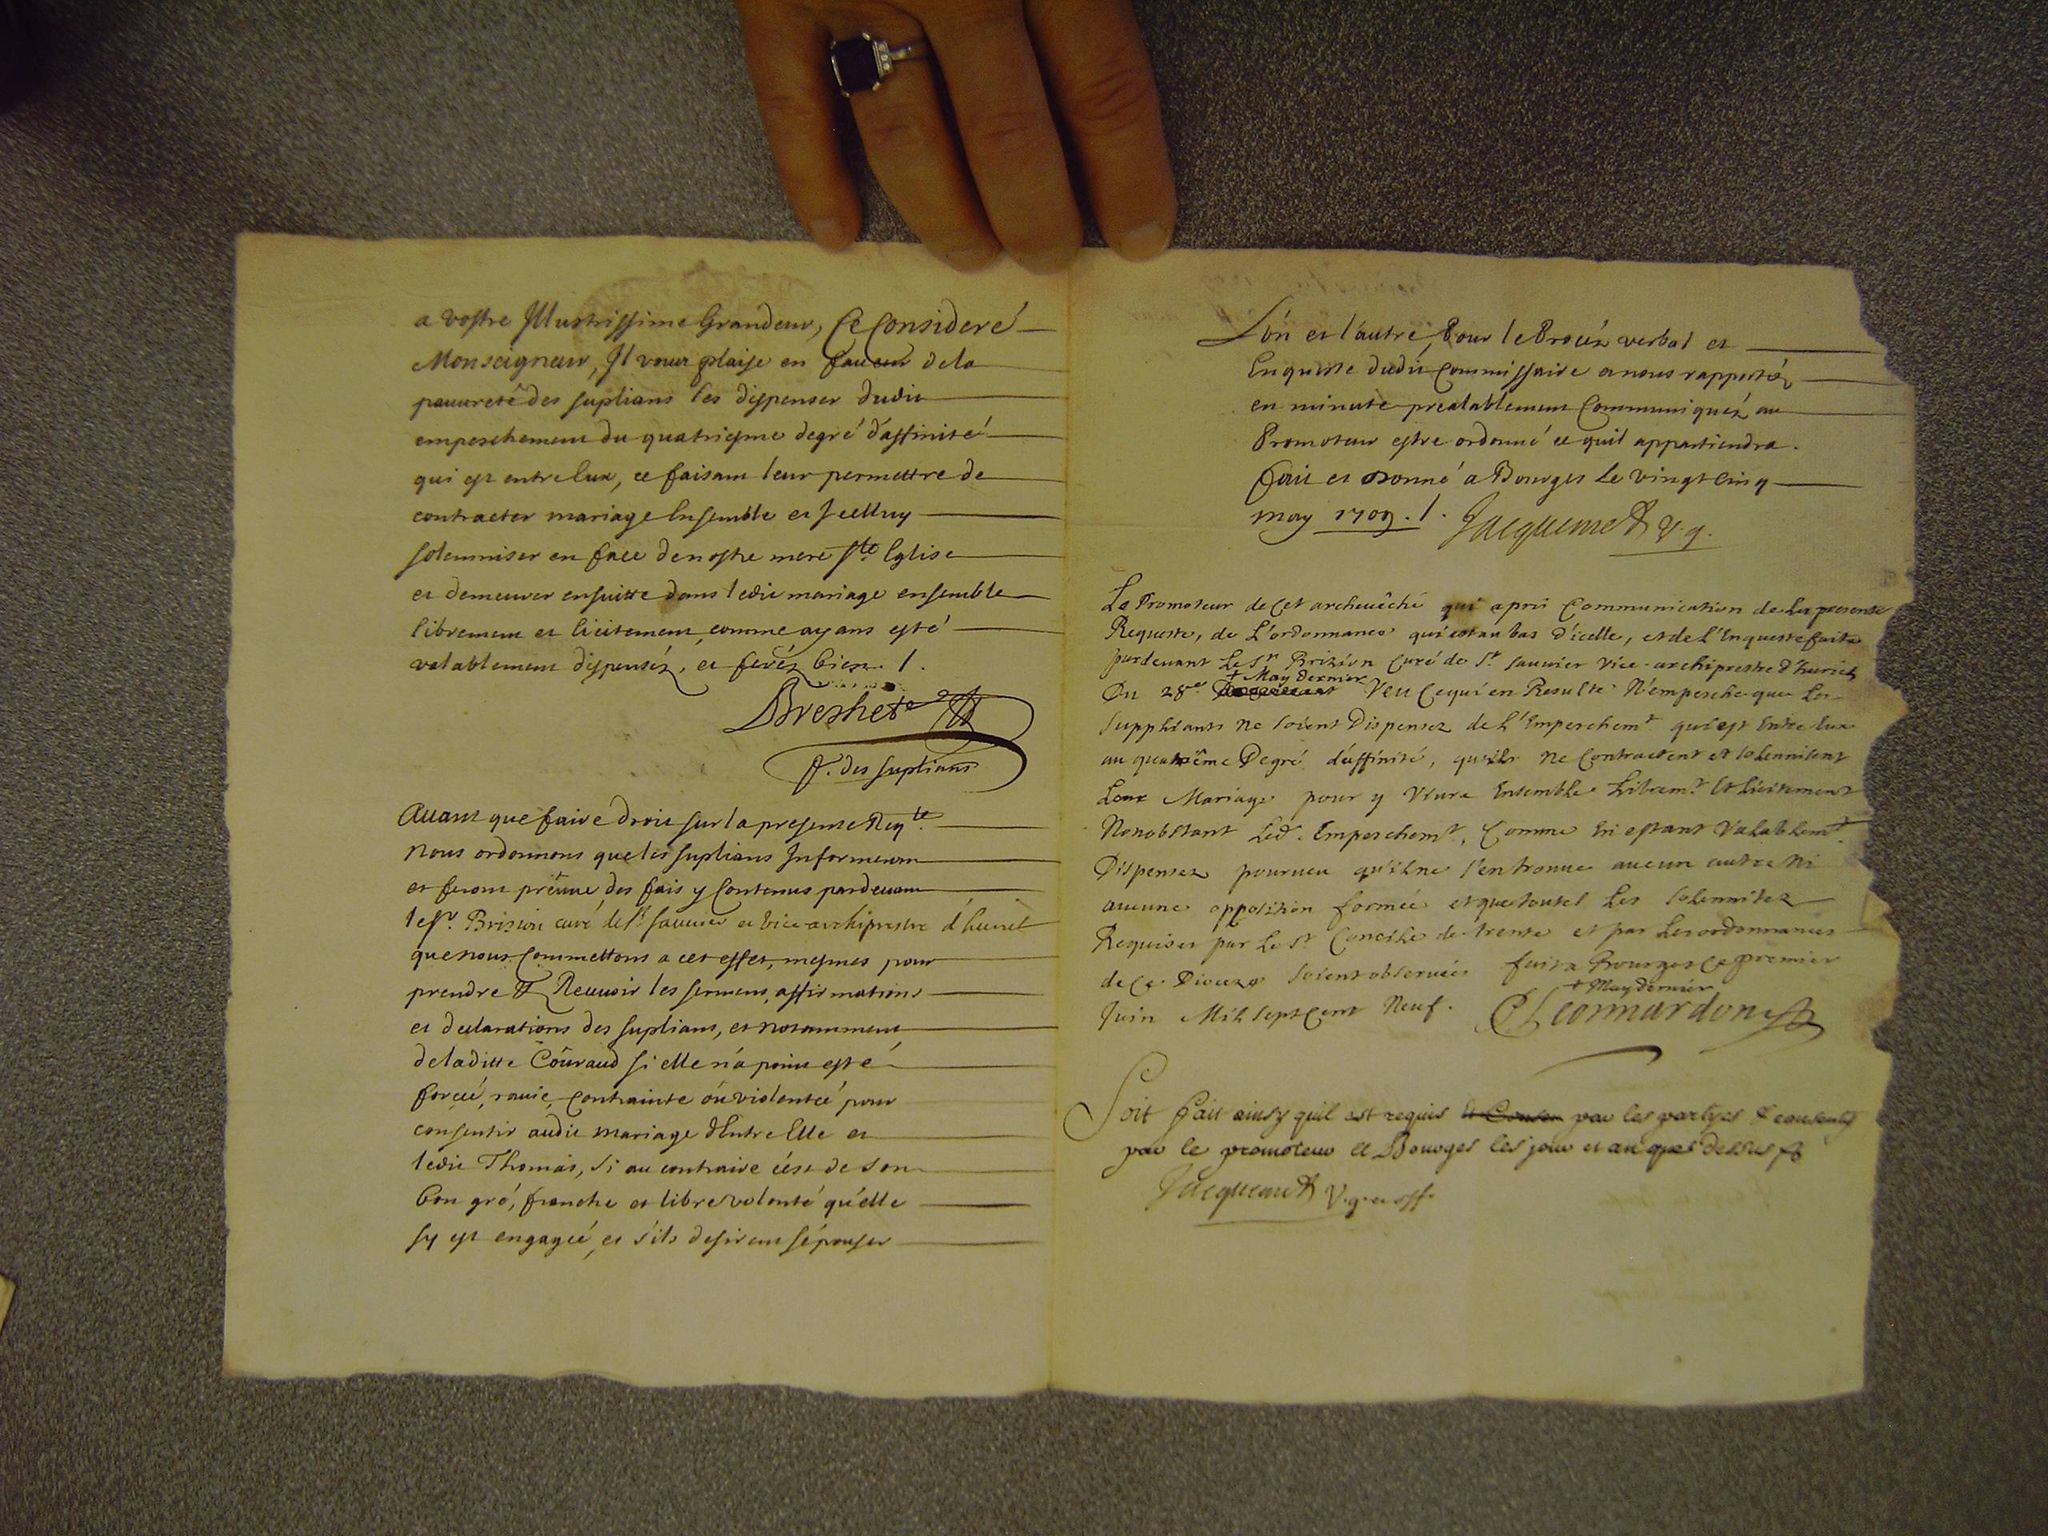 a vostre Illustrissime Grandeur, Ce Consideré
Monseigneur, Il vous plaise en faueur dela
pauureté des suplians les dispenser dudit
empeschement du quatriesme degré d'affinité
qui est entre Eux, ce faisant leur permettre de
contracter mariage Ensemble et Icelluy
solemniser en face de nostre mere ste Eglise
et demeurer ensuitte dans ledit mariage ensemble
librement et licitement, comme ayans esté
valablement dispensés, et ferés bien. /.
Breshet
P. des suplians
Auant que faire droit sur la presente Reqte
nous ordonnons que les suplians Informeront
et feront préuue des fais y Contenus pardeuant
le sr. Brizion curé de St sauuier et vice archiprestre d'hueriel
que nous Commettons a cet effet, mesmes pour
prendre & Receuoir les sermens, affirmations
et declarations des suplians, et notamment
de laditte Coûraud si elle n'a point esté
forcée, rauie, contrainte oú violentée pour
consentir audit mariage d'Entre Elle et
ledit Thomas, si au contraire c'est de son
bon gré, franche et libre volonté qu'elle
sy est engagée, et s'ils desirent s'épouser
L'ún et l'autre, Pour le Procés verbal et
Enqueste dudit Commissaire a nous rapportés
en minute prealablement Communiquéz au
Promoteur estre ordonné ce quil appartiendra.
fait et donné a Bourges le vingt cinq
may 1709. /. Jacquemet v. g.
Le Promoteur de Cet archeuêché qui a pris Communication de La presente
Requeste, de L'ordonnance qui est au bas d'icelle, et de L'Enqueste faite
pardeuant Le Sr Brizion Curé de St sauuier Vice-archiprestre d'huriel
+ May dernier
Du 28e Veu Ce qui en Resulte N'empesche que Les
supplians ne soient Dispensez de L'Empeschemt qui est Entre Eux
au quatrième Degré d'affinité, qu'ils ne Contractent et solennisent
Leur Mariage pour y Viure Ensemble Libremt. Et licitement
Nonobstant Led. Empeschemt, Comme En estant Valablemt.
Dispensez pourueu qu'il ne s'en trouue aucun autre Ni
aucune opposition formée et que toutes Les solennitez
Requises par Le St Concile de trente et par Les ordonnances
de Ce Dioceze soient obseruées fait a Bourges Ce premier
Juin Mil Sept Cent Neuf.
+ May dernier
Leonnardon
Soit fait ainsy quil est requis et Consen par les partyes & consenty
par le promoteur A Bourges les jour et an que dessus
Jacquemet V. g. et off.